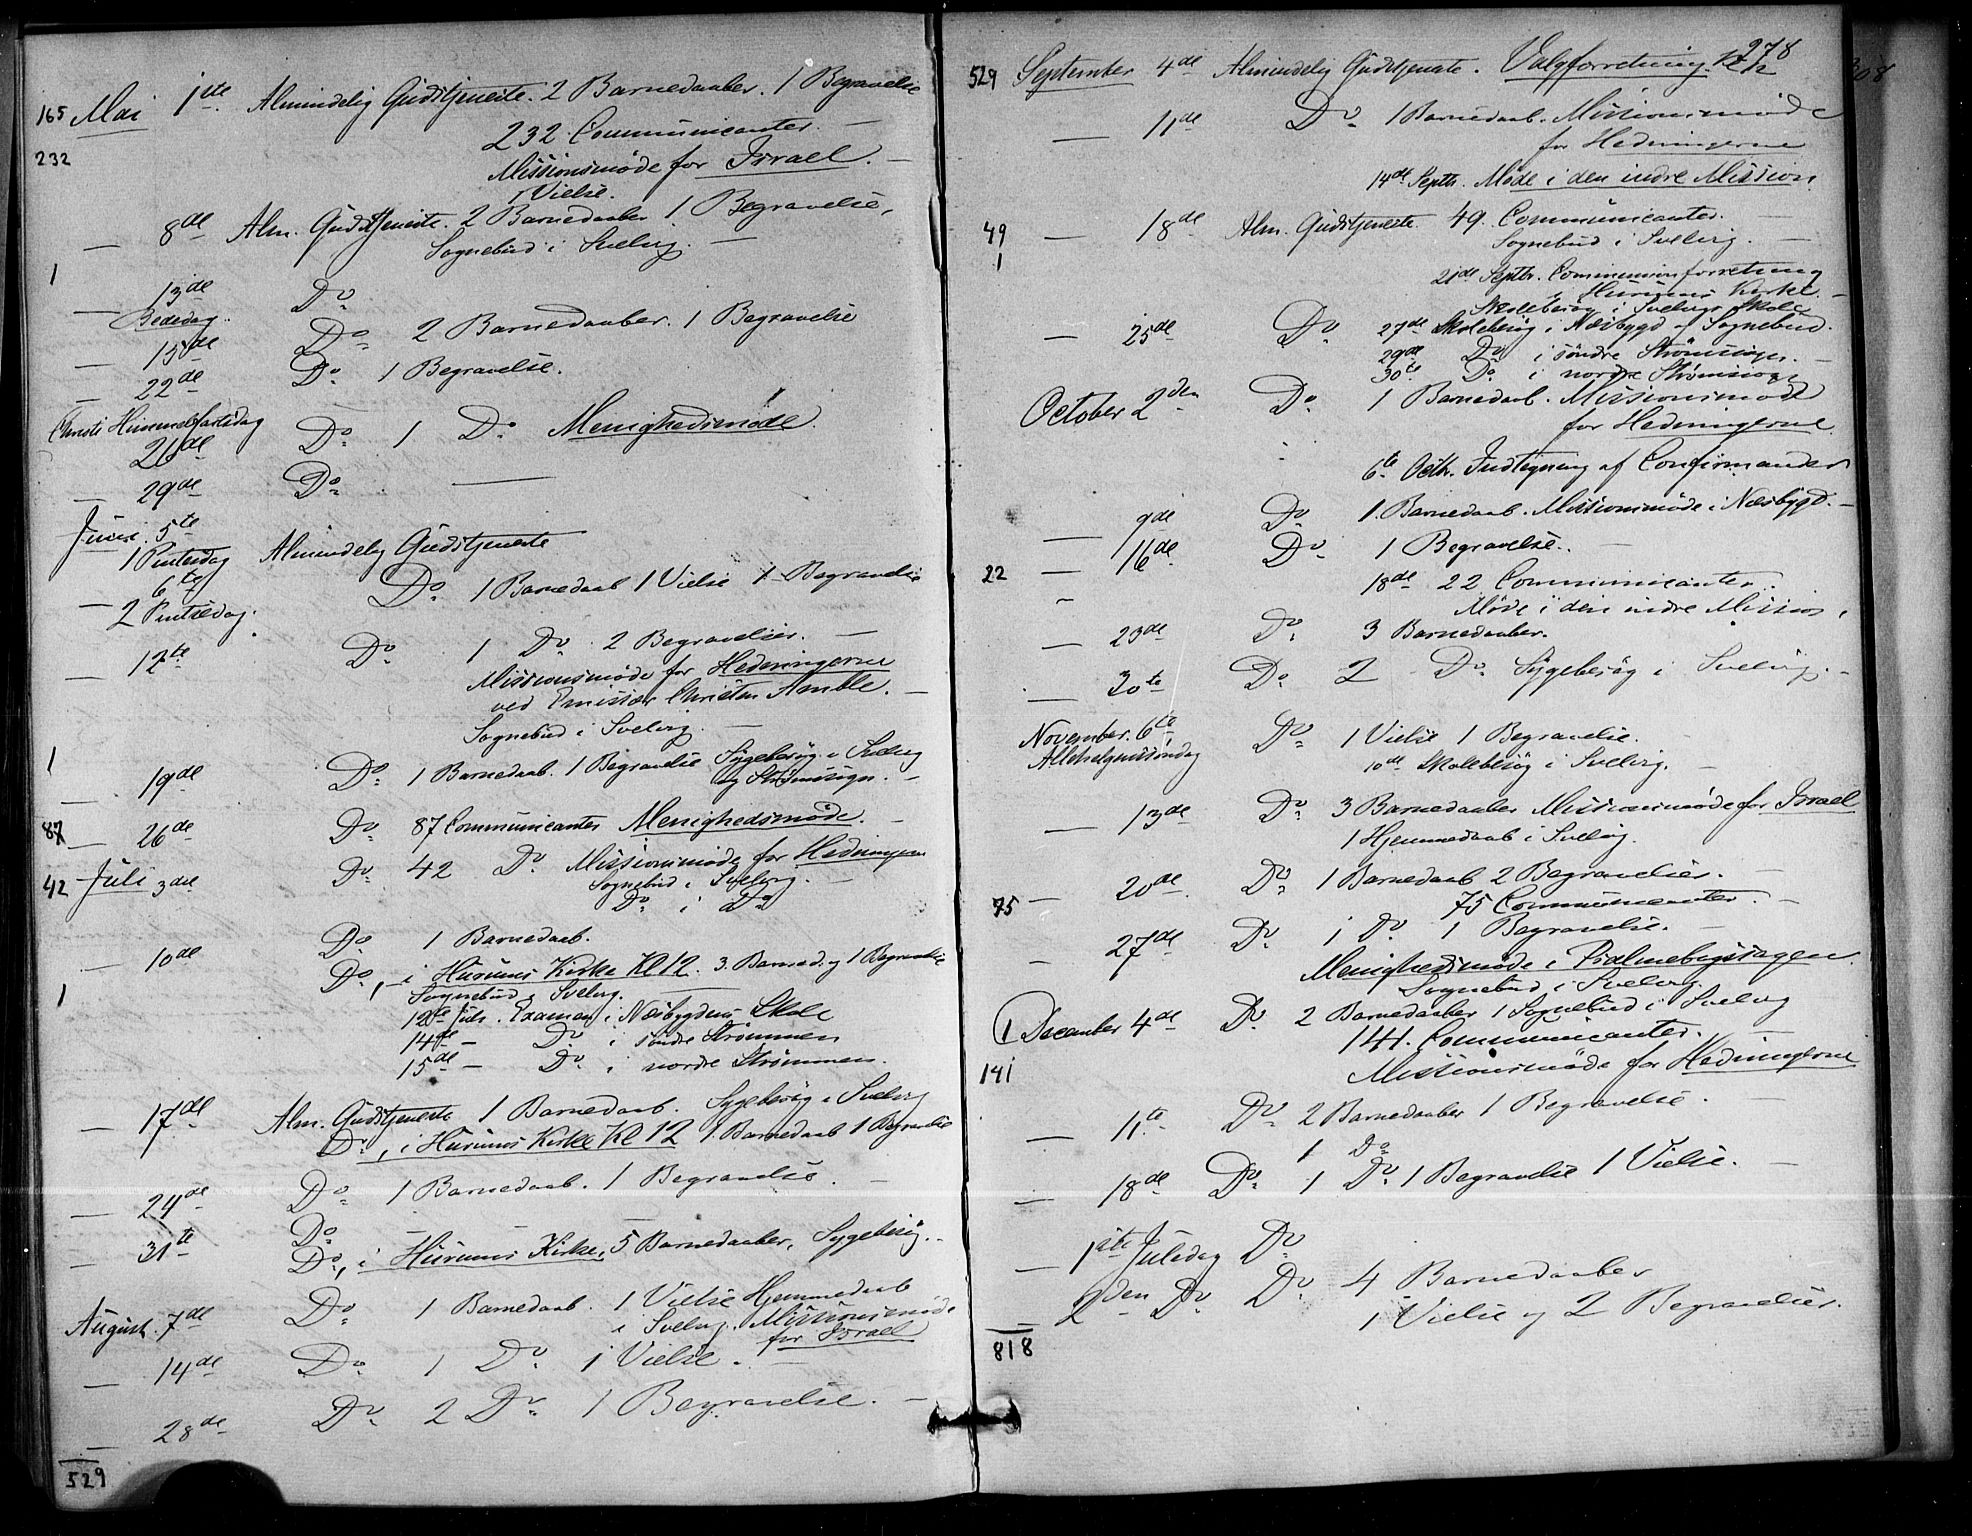 165 Mai 1ste Almindelig Gudstjeneste. 2 Barnedaaber. 1 Begravelse
232. Communicanter. —
232
Missionsmøde for Israel. —
1 Vielse.
— 8de Alm. Gudstjeneste. 2 Barnedaaber 1 Begravelse,
Sognebud i Svelvig. —
1
— 13de Do
Bededag.
— 15de Do 2 Barnedaaber. 1 Begravelse
— 22de Do 1 Begravelse.
Christi Himmelfartsdag
26de Do 1 Do Menighedsmøde.
— 29de Do —
Juni. 5te
1 Pintsedag Almindelig Gudstjeneste
— 6te Do 1 Barnedaab 1 Vielse 1 Begravelse
2 Pintsedag.
12te Do 1 Do 2 Begravelser. —
Missionsmøde for Hedningerne
ved Emissær Christen Amble. —
Sognebud i Svelvig. —
1
— 19de Do 1 Barnedaab. 1 Begravelse Sygebesøg i Svelvig
og Strømmen. —
87 — 26de Do 87 Communicanter Menighedsmøde. —
42 Juli 3die Do 42 Do Missionsmøde for Hedningerne
Sognebud i Svelvig. —
Do i Do
— 10de Do 1 Barnedaab.
Do, i Hurums Kirke Kl 12. 3. Barned. og 1 Begravelse
1
Sognebud i Svelvig.
12te Juli. Examen i Næsbygdens Skole
14de — Do i søndre Strømmen
15de — Do i nordre Strømmen.
— 17de Alm. Gudstjeneste 1 Barnedaab. Sygebesøg i Svelvig
Do, i Hurums Kirke Kl 12 1. Barnedaab 1 Begravelse
— 24de Do 1 Barnedaab. 1 Begravelse. —
— 31te Do
Do, i Hurums Kirke, 5 Barnedaaber, Sygebesøg. —
August. 7de Do 1 Barnedaab. 1 Vielse Hjemmedaab
i Svelvig. Missionsmøde
for Israel
— 14de Do 1 Do 1 Vielse. —
— 28de Do 2 Do 1 Begravelse. —
529
278
308
529 September 4de Almindelig Gudstjeneste. Valgforretning. Kl 12
— 11de Do 1 Barnedaab. Missionsmøde
for Hedningerne
14de Septb. Møde i den indre Mission
49 — 18de Alm. Gudstjeneste 49. Communicanter.
Sognebud i Svelvig. —
1
21de Septbr. Commissionsforretning
i Hurums Kirke. —
Skolebesøg i Svelvigs Skole
— 25de Do 27de Skolebesøg i Næsbygd og Sognebud.
29de Do i søndre Strømmen. —
30te Do i nordre Strømmen
October 2den Do 1 Barnedaab. Missionsmøde
for Hedningerne
6te Octb. Indtegning af Confirmander
— 9de Do 1. Barnedaab. Missionsmøde i Næsbygd. —
— 16de Do 1 Begravelse. —
22
18de 22 Communicanter.
Møde i den indre Mission.
— 23de Do 3 Barnedaaber.
— 30te Do 2 Do Sygebesøg i Svelvig. —
November. 6te Do 1 Vielse 1 Begravelse.
Allehelgenssøndag
10de Skolebesøg i Svelvig. —
— 13de Do 3 Barnedaaber Missionsmøde for Israel
1 Hjemmedaab i Svelvig.
— 20de Do 1 Barnedaab 2 Begravelser. —
75
75 Communicanter. —
— 27de Do 1 Do 1 Begravelse. —
Menighedsmøde i Psalmebogssagen.
Sognebud i Svelvig.
1 December 4de Do 2 Barnedaaber 1 Sognebud i Svelvig
141. Communicanter.
141
Missionsmøde for Hedningerne
— 11te Do 2 Barnedaaber 1 Begravelse. —
1 Do
— 18de Do 1 Do 1 Begravelse 1 Vielse. —
— 1ste Juledag Do
— 2den Do Do 4 Barnedaaber
1 Vielse og 2 Begravelser.
818